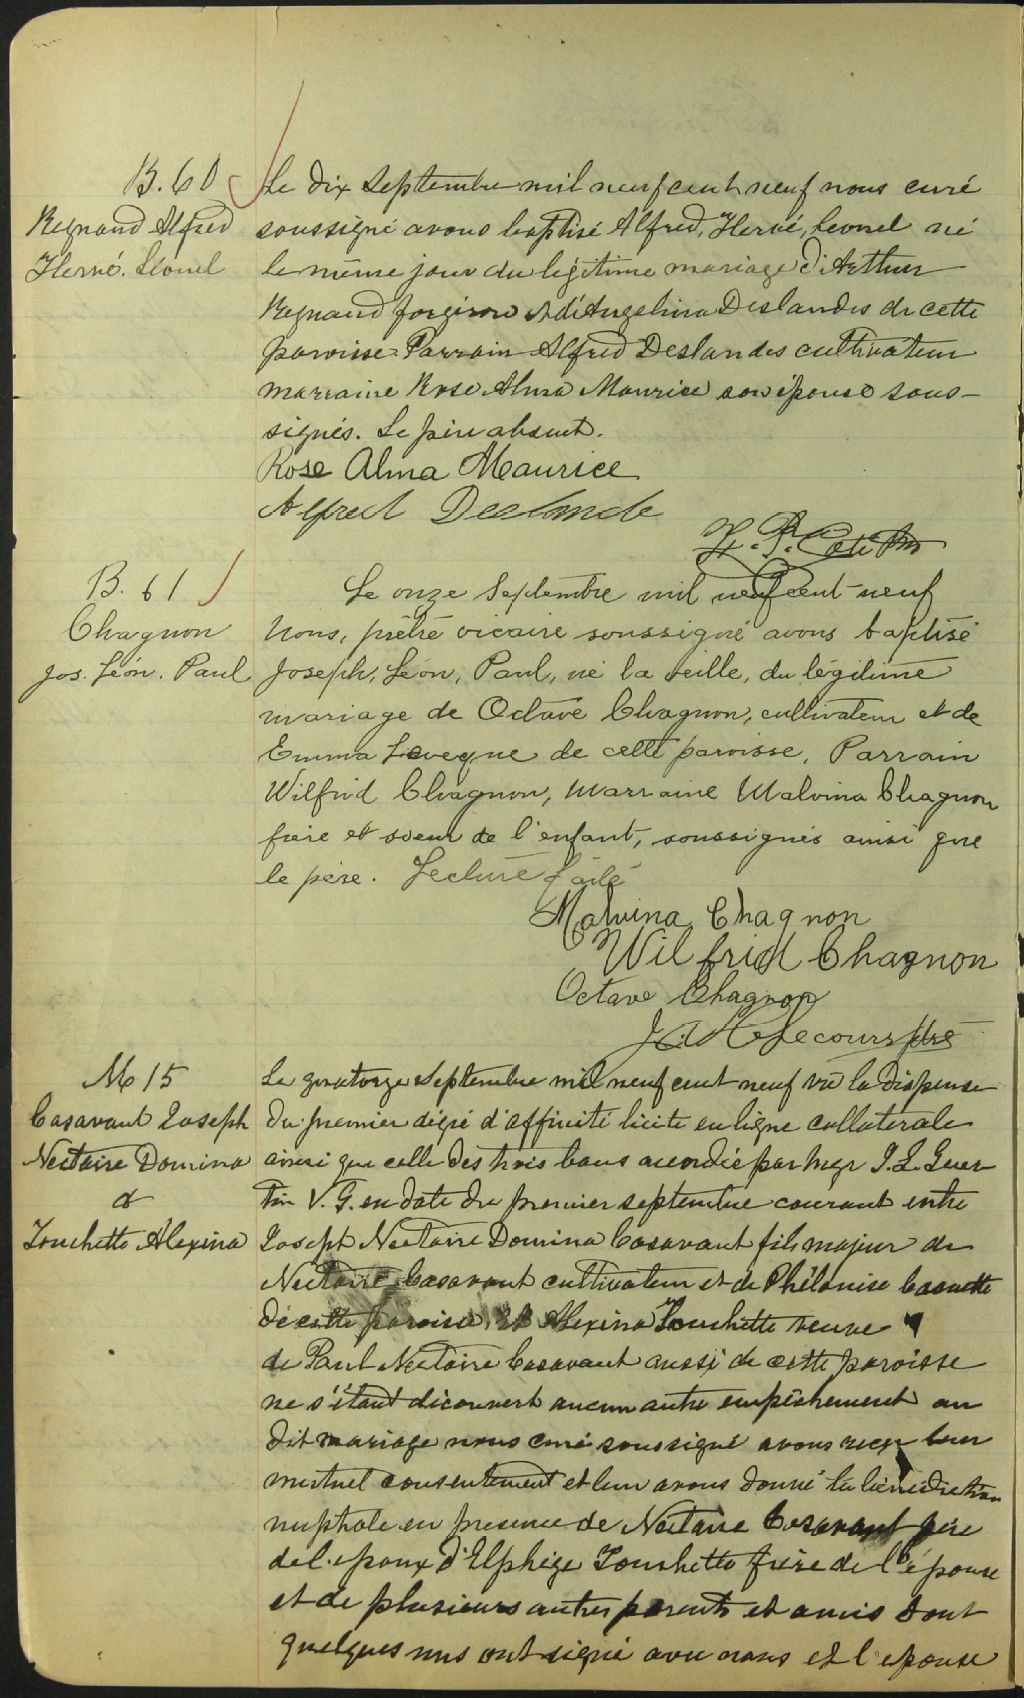 B. 60
Regnaud Alfred
Hervé. Léonel
Le dix septembre mil neuf cent neuf nous curé
soussigné avons baptisé Alfred, Hervé, Leonel né
le même jour du légitime mariage d'Arthur
Regnaud forgeron et d'Angelina Deslandes de cette
paroisse. Parrain Alfred Deslandes cultivateur
marraine Rose Alma Maurice son épouse sous-
signés. Le père absent.
Rose Alma Maurice
Alfred Deslande
B. 61
Chagnon
Jos. Léon. Paul
Le onze Septembre mil neuf cent neuf
Nous, prêtre vicaire soussigné avons baptisé
Joseph, Léon, Paul, né la veille, du légitime
mariage de Octave Chagnon, cultivateur et de
Emma Leveque de cette paroisse. Parrain
Wilfrid Chagnon, Marraine Malvina Chagnon
frère et soeur de l'enfant, soussignés ainsi que
le père. Lecture faite
Malvina Chagnon
Wilfrid Chagnon
Octave Chagnon
Lecours ptre
M 15
Casavant Joseph
Nectaire Domina
&
Touchette Alexina
Le quatorze septembre mil neuf cent neuf vu la dispense
du premier degré d'affinité licite en ligne collaterale
ainsi que celle des trois bans accordée par Mgr J. L. Guer
tin V. G. en date du premier septembre courant entre
Joseph Nectaire Domina Casavant fils majeur de
Nectaire Casavant cultivateur et de Phélonise
de cette paroisse et Alexina Touchette veuve
de Paul Nectaire Casavant aussi de cette paroisse
ne s'étant découvert aucun autre empêchement au
dit mariage nous curé soussigné avons reçu leur
mutuel consentement et leur avons donné la bénédiction
nuptiale en presence de Nectaire Casavant père
de l'epoux d'Elphège Touchette frère de l'épouse
et de plusieurs autres parents et amis dont
quelques uns ont signé avec nous et l'epouse